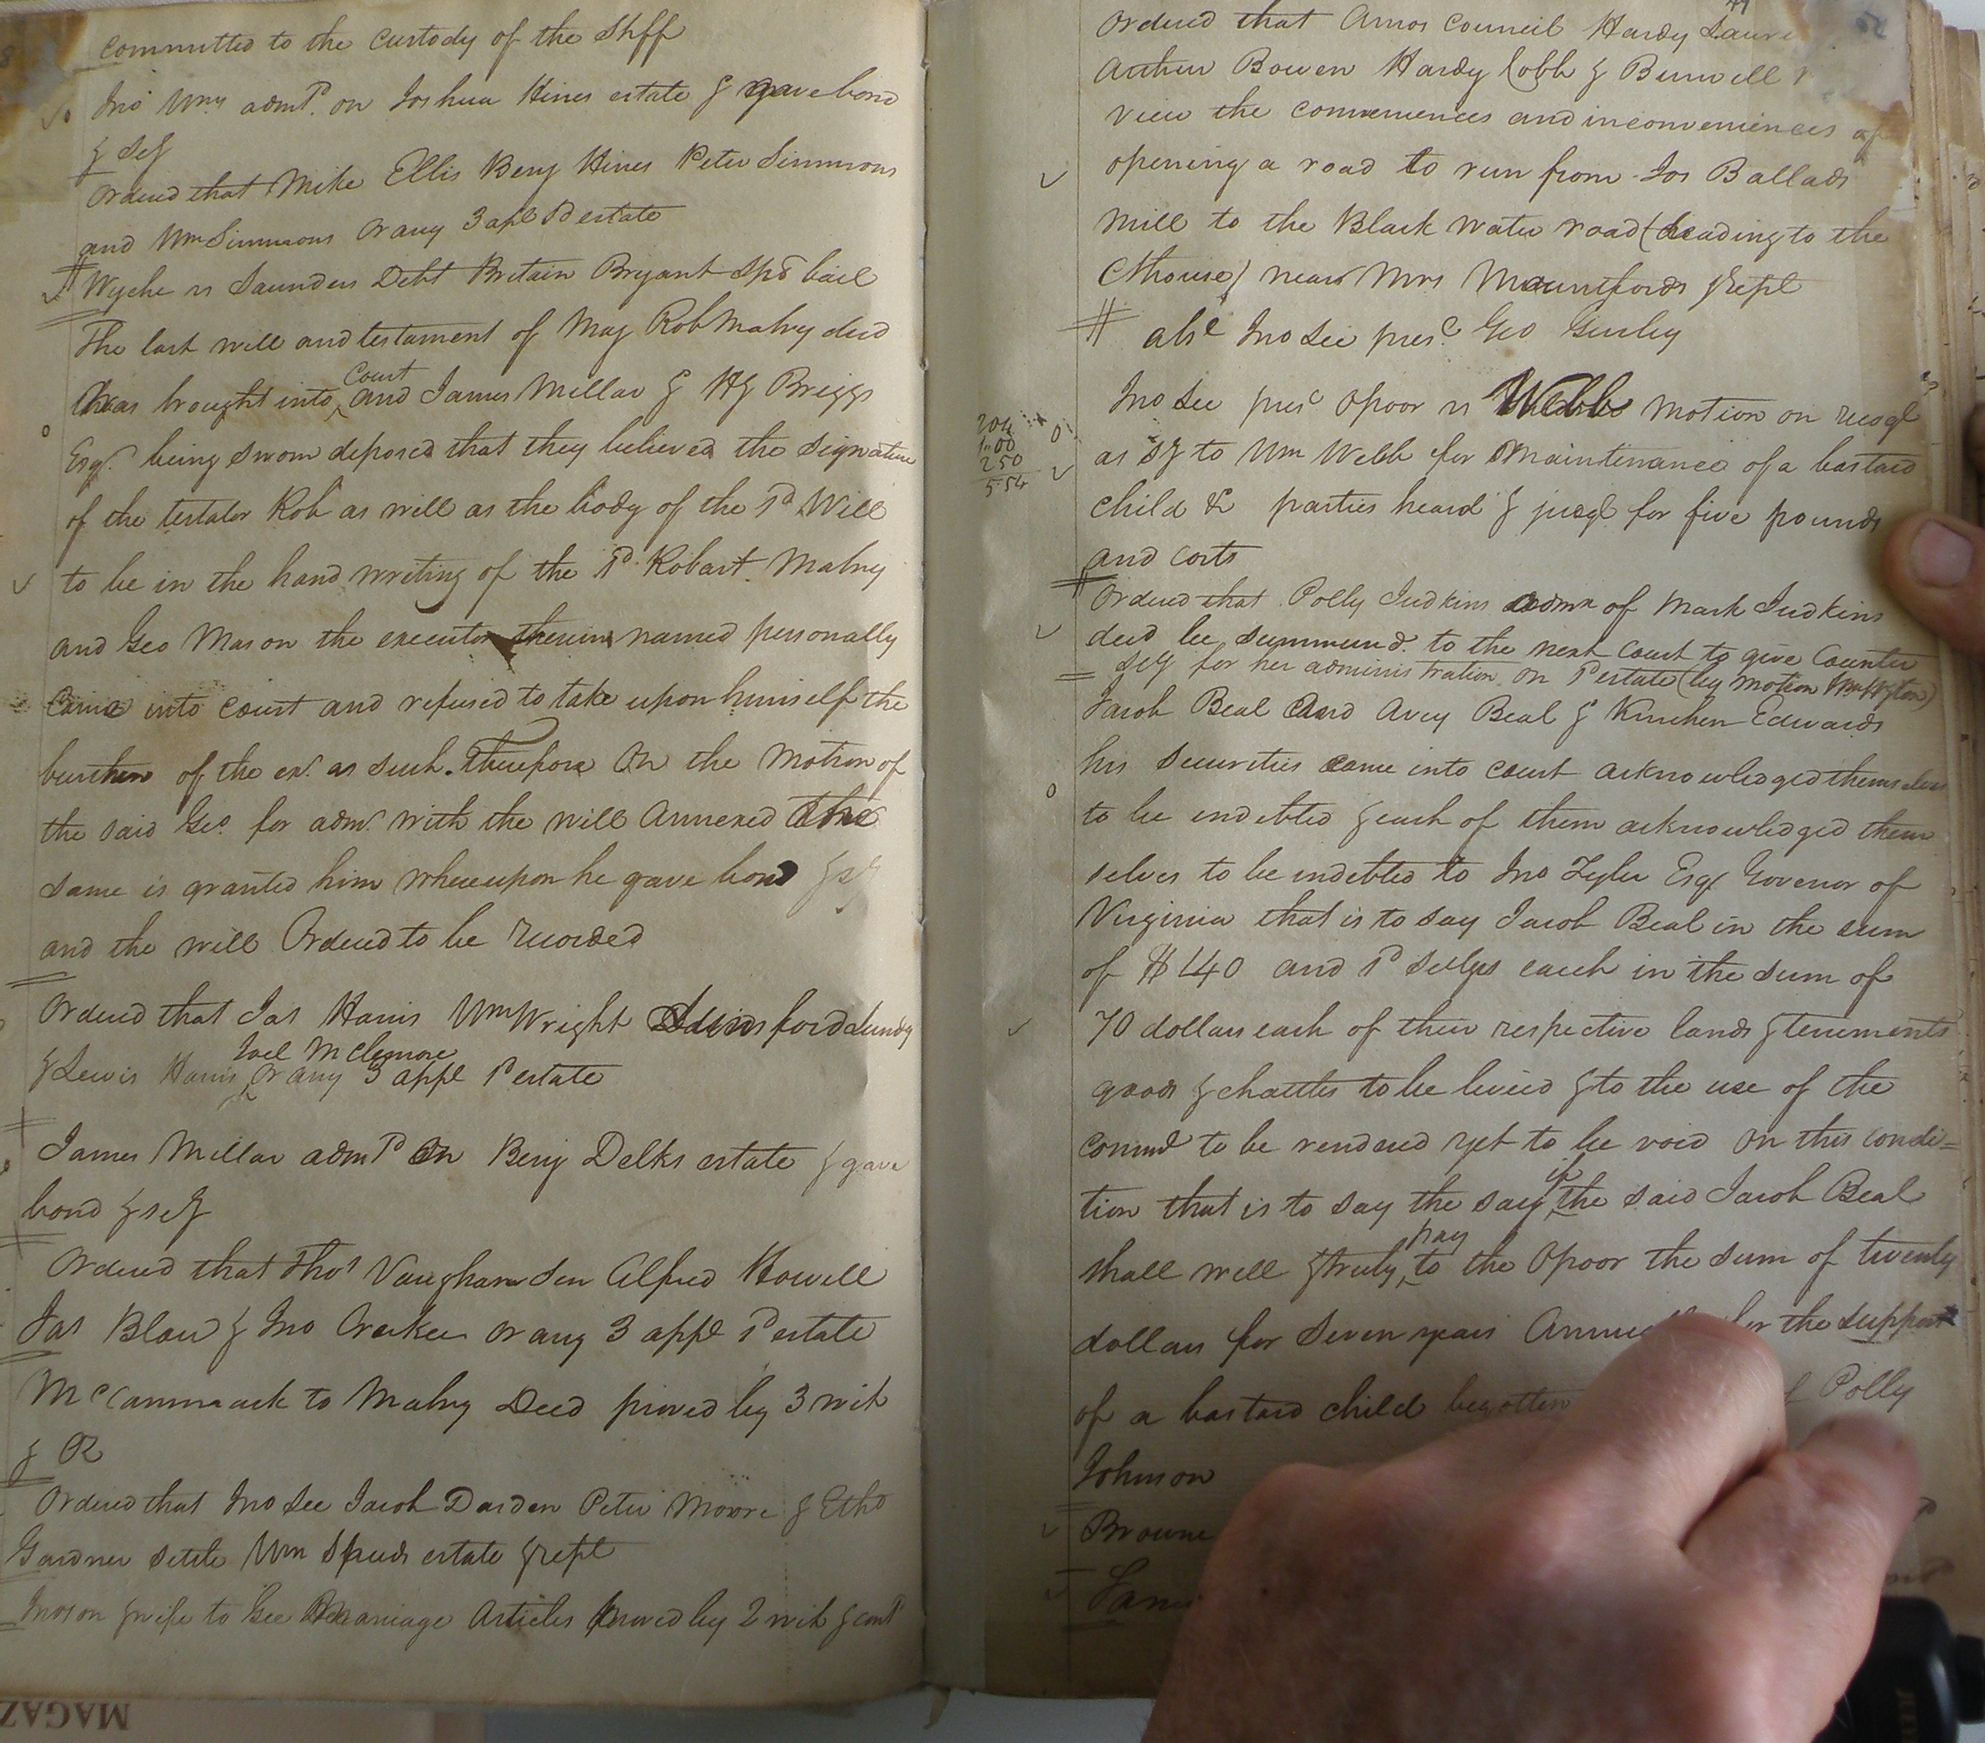 committed to the custody of the Shff
Jno Wms admr. on Joshua Hines estate & gave bond
& scy
Ordered that Mike Ellis Benj Hines Peter Simmons
and Wm Simmons or any 3 apl sd estate
Wyche vs Saunders Debt Britain Bryant spl bail
The last will and testament of May Rob Mabry decd
was brought into court and James Millar & HJ Briggs
Esqr. being sworn deposed that they believed the signature
of the testator Rob as well as the body of the sd Will
to be in the hand writing of the sd Robart Mabry
and Geo Mason the executor therein named personally
Came into court and refused to take upon himself the
burthen of the exr. as such. Therefore on the motion of
the said Geo. for adm. with the will annexed the
same is granted him whereupon he gave bond & scy
and the will Ordered to be recorded
Ordered that Jas Harris Wm Wright
& Lewis Harris Joel McLemore or any 3 appl sd estate
James Millar admr on Benj Delks estate & gave
bond & scy
Ordered that Thos Vaughan Sen Alfred Howell
Jas Blow & Jno Crocker or any 3 appl sd estate
McCammack to Mabry Deed proved by 3 wit
& OR
Ordered that Jno Lee Jacob Darden Peter Moore & Ethd
Gardner settle Wm Speeds estate & rept
& wife to Gee marriage Articles proved by 2 wit & contd
Ordered that Amos Council Hardy
Arthur Bowen Hardy Cobb & Burwell
view the conveniences and inconveniences of
opening a road to run from Jos Ballads
mill to the Black water road (leading to the
Cthouse) near Mrs Mountfords & rept
abst Jno Lee prest Geo Gurley
Jno Lee prest Opoor vs Webb motion on recogl
204
1.00
250
5.54
as sy to Wm Webb for Maintenance of a bastard
child &c parties heard & judgt for five pounds
and costs
Ordered that Polly Judkins admx of Mark Judkins
decd be summond. to the next court to give Counter
scy for her administration on sd estate (by motion
Jacob Beal and Avey Beal & Kinchen Edwards
his securities came into court acknowledged themselves
to be indebted & each of them acknowledged them
selves to be indebted to Jno Tyler Esqr Govenor of
Virginia that is to say Jacob Beal in the sum
of $140 and sd each in the sum of
70 dollars each of their respective lands & tenements
goods & chattles to be levied & to the use of the
Commd to be rendered yet to be void on this condi=
tion that is to say the say if the said Jacob Beal
shall well & truly pay to the Opoor the sum of twenty
dollars for seven years for the support
of a bastard child begotten Polly
Johnson
Browne
MAGAZ